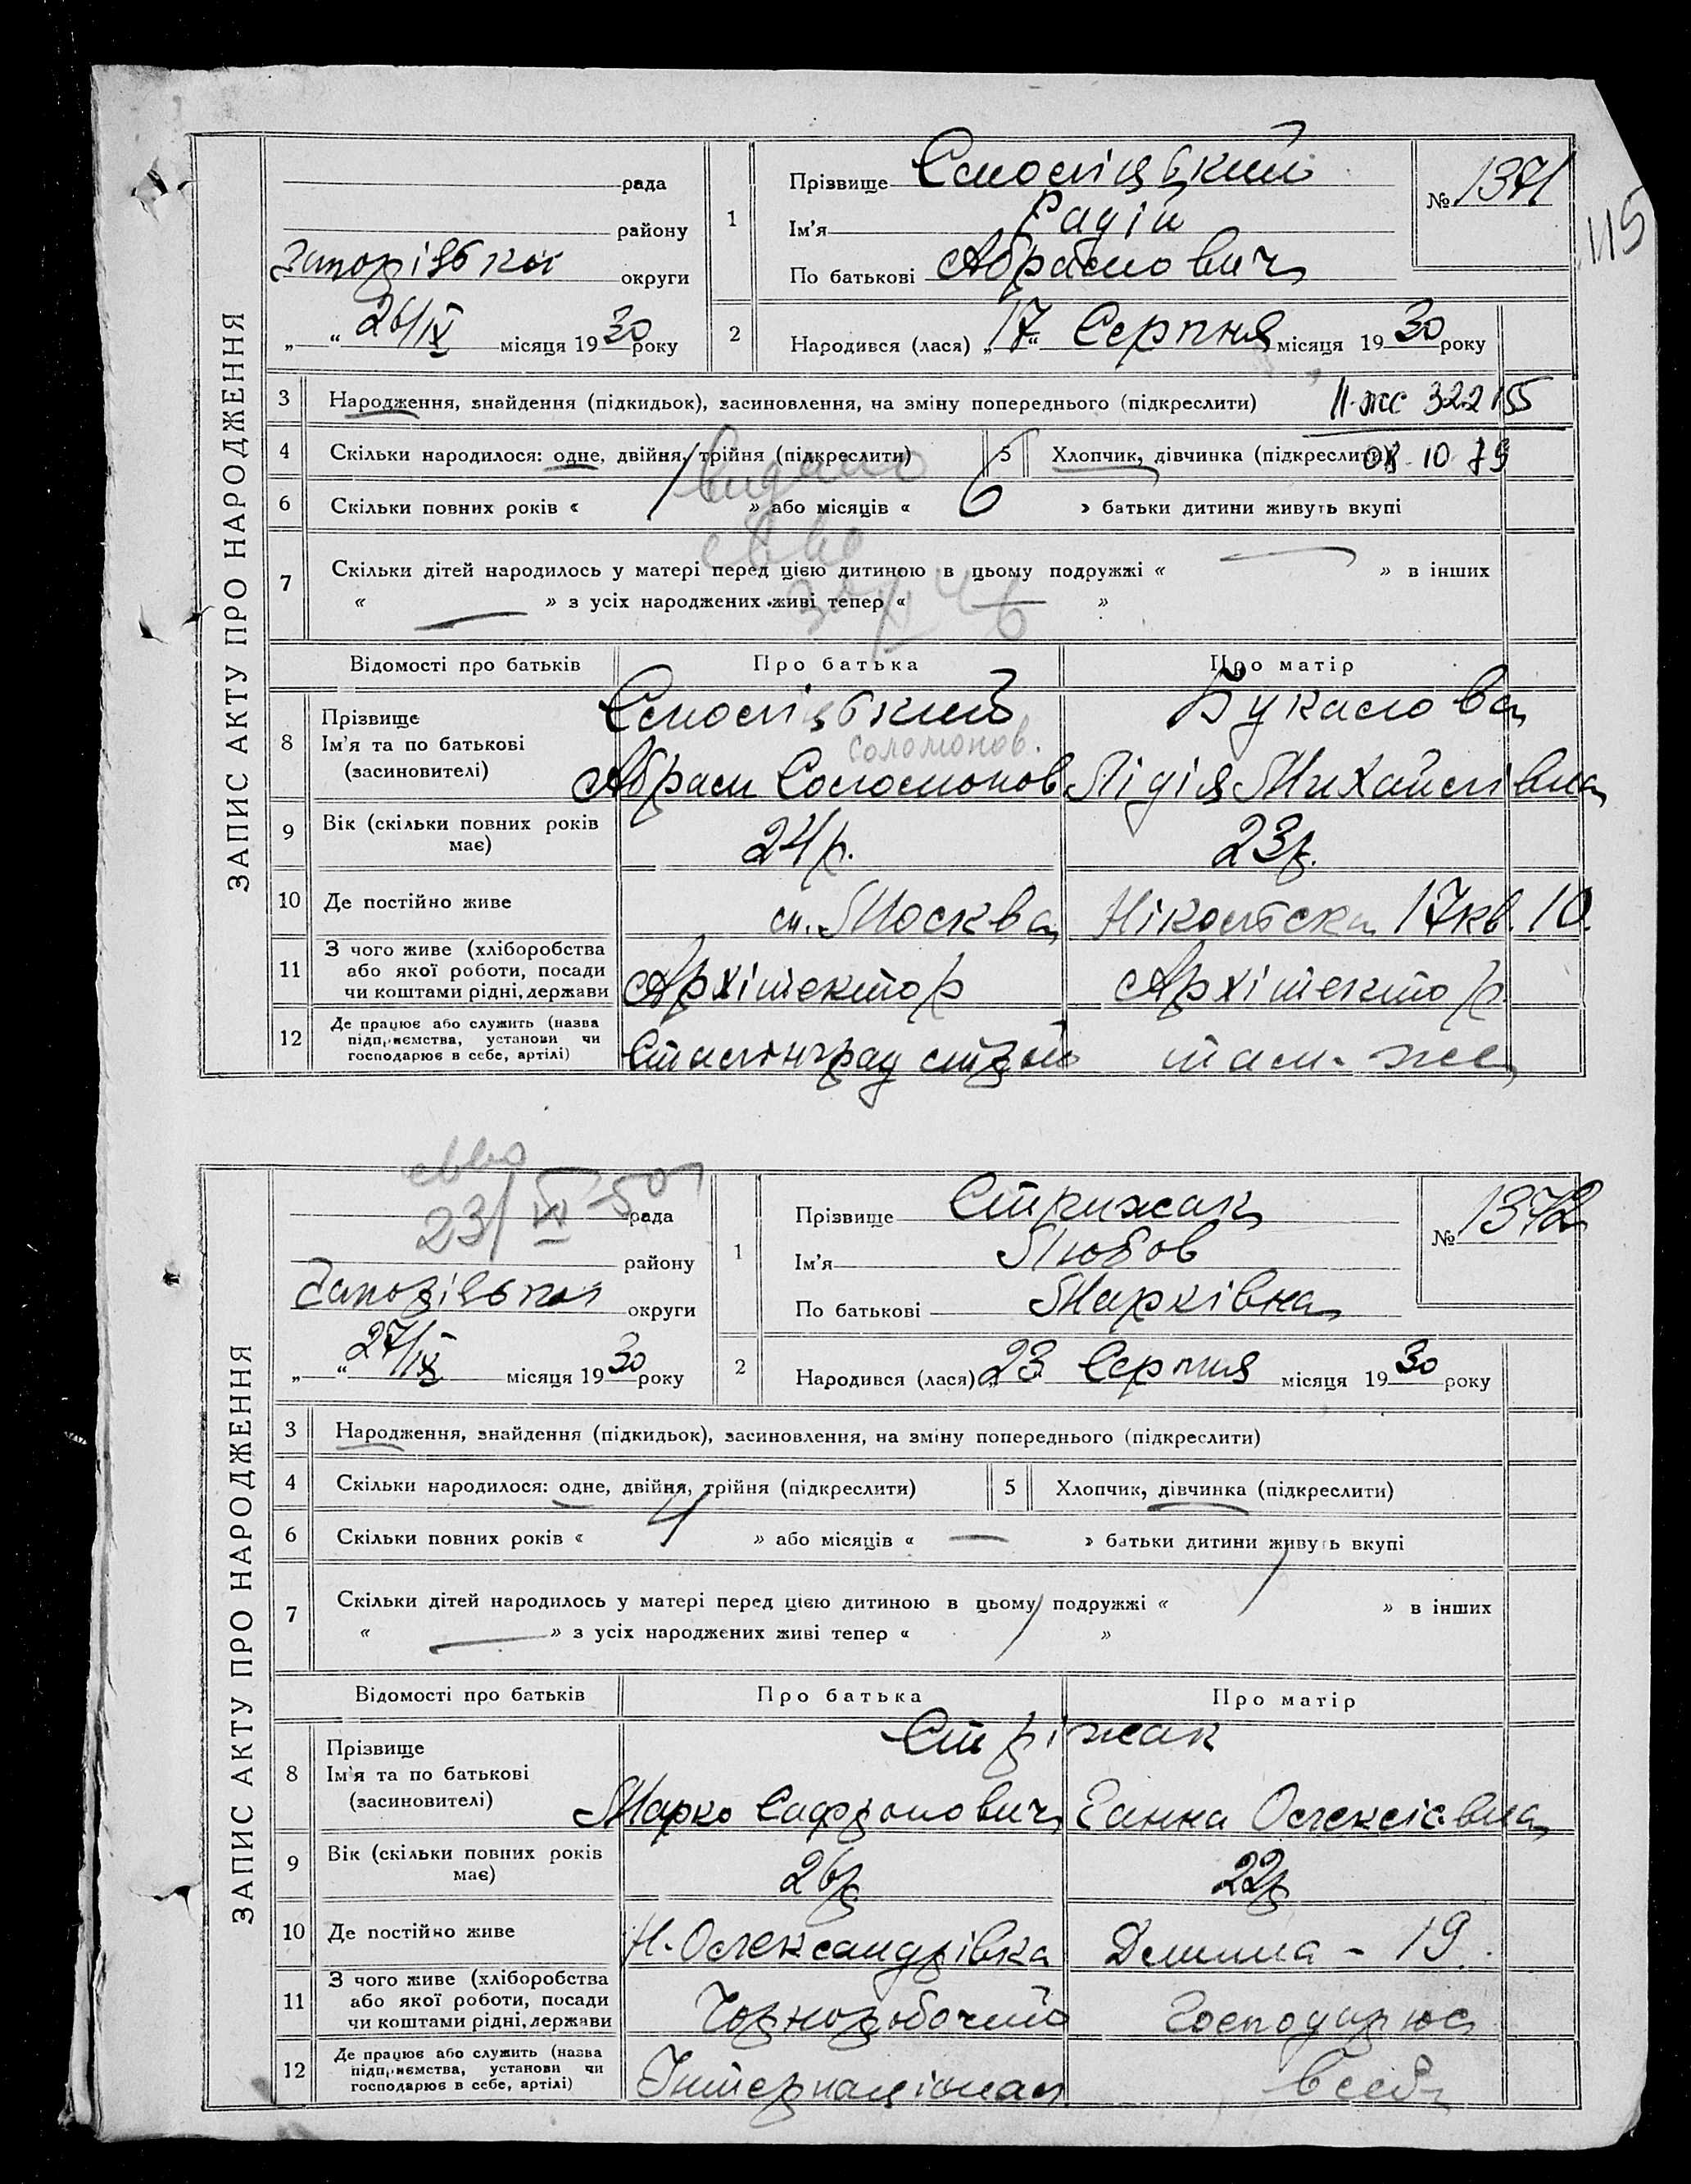 115
ЗАПИС АКТУ ПРО НАРОДЖЕННЯ
рада
району
Запорізької округи
„ “ 26/IX місяця 1930 року
1 Прізвище Смоліцький
Ім'я Радій
По батькові Абрамович
№ 1371
2 Народився (лася) „17“ Серпня місяця 1930 року
3 Народження, знайдення (підкидьок), засиновлення, на зміну попереднього (підкреслити) II-жс 322155
4 Скільки народилося: одне, двійня, трійня (підкреслити) 5 Хлопчик, дівчинка (підкреслити) 08 10 79
Видано
6 Скільки повних років « 1 » або місяців « 6 » батьки дитини живуть вкупі
7 Скільки дітей народилось у матері перед цією дитиною в цьому подружжі « — » в інших
« — » з усіх народжених живі тепер « — »
Відомості про батьків Про батька Про матір
8 Прізвище Ім'я та по батькові (засиновителі)
Смоліцький Букалова
Соломонов.
Абрам Соломонов Лідія Михайлівна
9 Вік (скільки повних років має) 24 р. 23 р.
10 Де постійно живе м. Москва Нікольска 17 кв. 10.
11 З чого живе (хліборобства або якої роботи, посади чи коштами рідні, держави Архітектор Архітектор
12 Де працює або служить (назва підприємства, установи чи господарює в себе, артілі) Сталінград строй там-же
23/VI-50
ЗАПИС АКТУ ПРО НАРОДЖЕННЯ
рада
району
Запорізької округи
„ “ 27/IX місяця 1930 року
1 Прізвище Стрижак
Ім'я Любов
По батькові Марківна
№ 1372
2 Народився (лася) „23 Серпня місяця 1930 року
3 Народження, знайдення (підкидьок), засиновлення, на зміну попереднього (підкреслити)
4 Скільки народилося: одне, двійня, трійня (підкреслити) 5 Хлопчик, дівчинка (підкреслити)
6 Скільки повних років « 4 » або місяців « — » батьки дитини живуть вкупі
7 Скільки дітей народилось у матері перед цією дитиною в цьому подружжі « 1 » в інших
« — » з усіх народжених живі тепер « 1 »
Відомості про батьків Про батька Про матір
8 Прізвище Ім'я та по батькові (засиновителі)
Стріжак
Марко Сафронович Ганна Олексієвна
9 Вік (скільки повних років має) 26 р 22 р
10 Де постійно живе Н. Олександрівка - 19.
11 З чого живе (хліборобства або якої роботи, посади чи коштами рідні, держави Чорноробочий Господарює
12 Де працює або служить (назва підприємства, установи чи господарює в себе, артілі) Інтернаціонал в себе